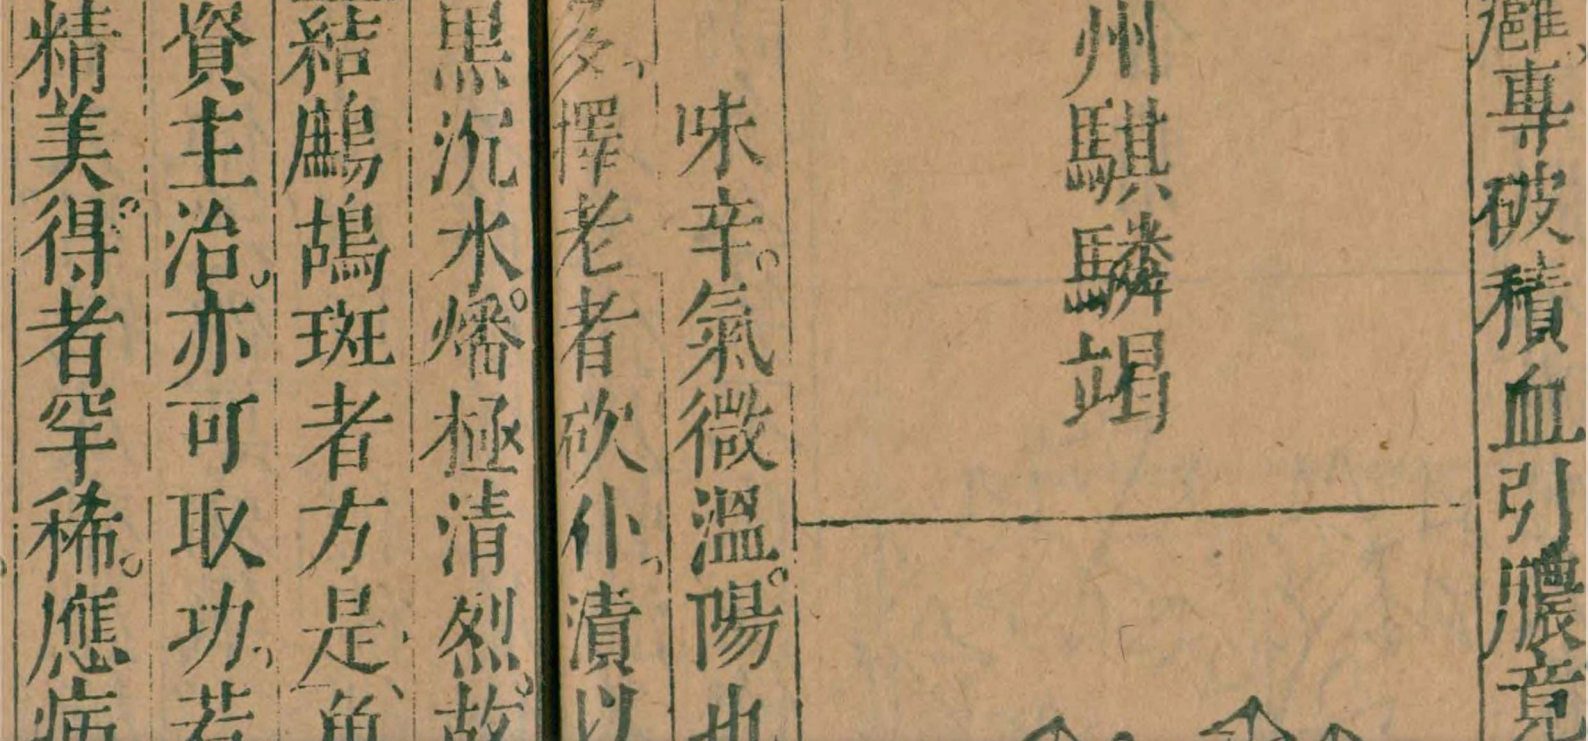 癰專破積血引膿竟
州騏驎竭
味辛氣微溫陽也
多擇老者砍仆漬以
黑沉水燔極清烈故
結鷓鴣斑者方是角
資主治亦可取功若
精美得者罕稀應病